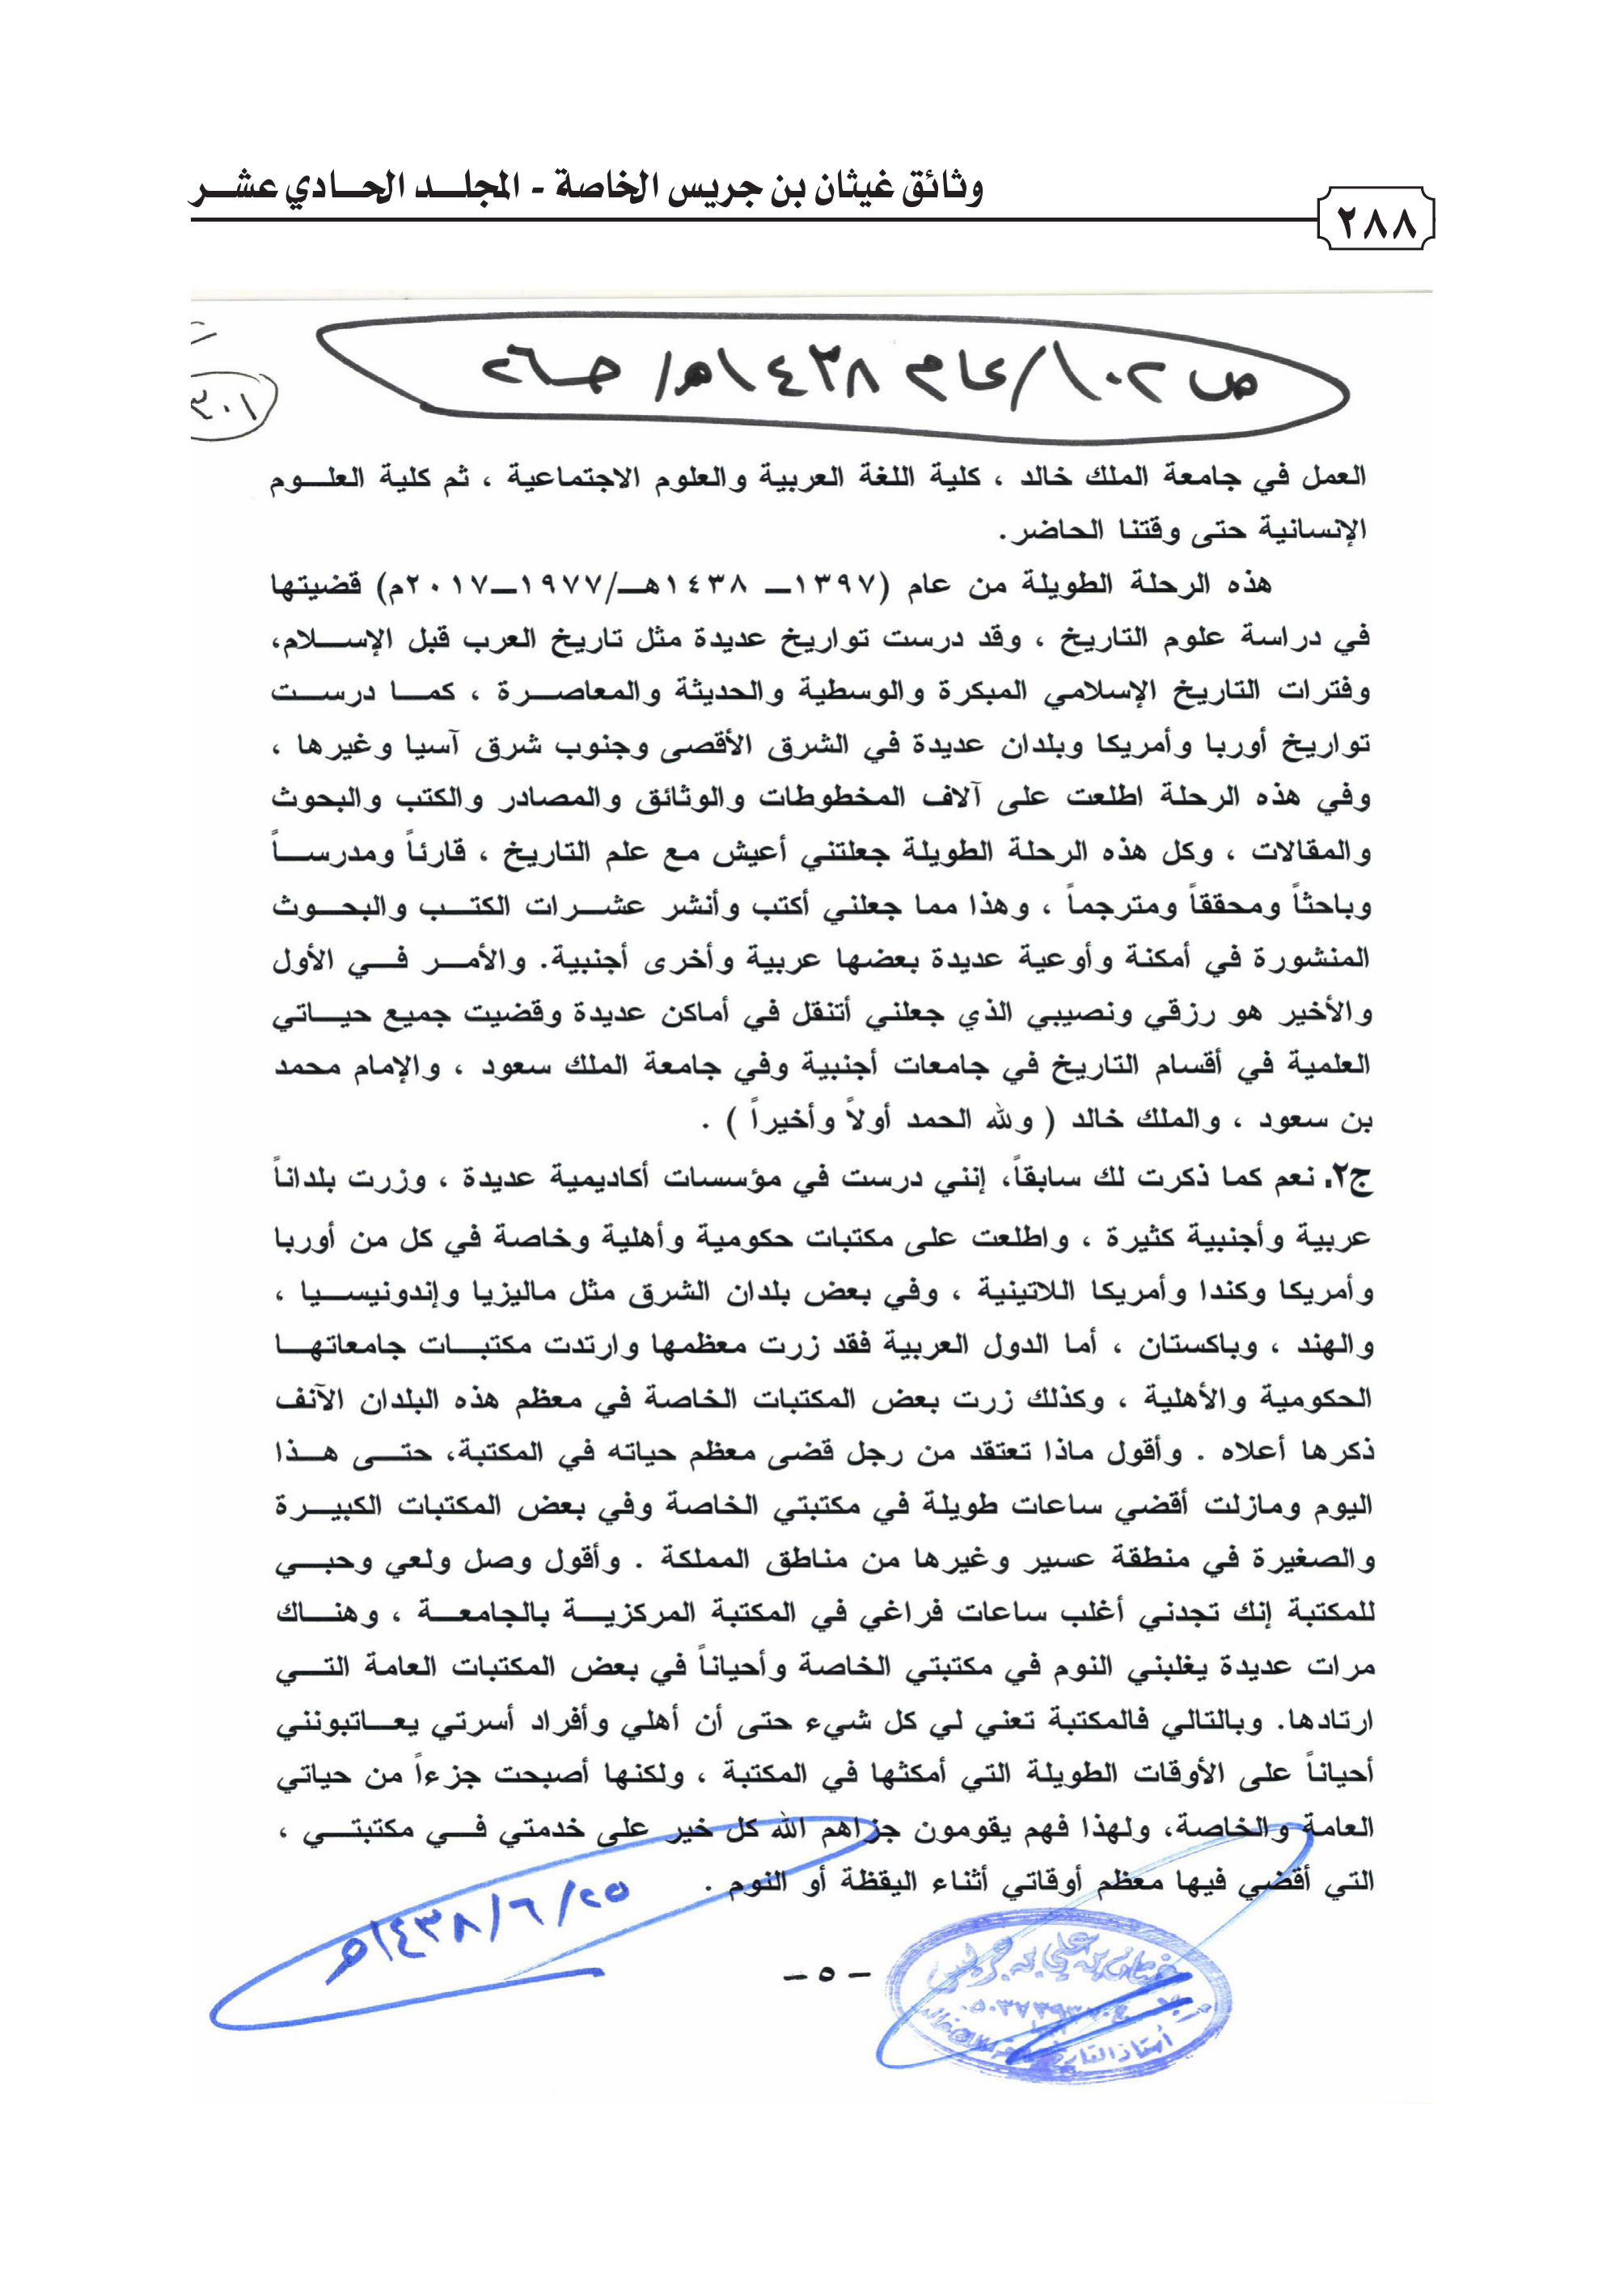 وثائق غيثان بن جريس الخاصة - المجلـــد الحـــادي عشـــر
٢٨٨
ص ١٠٢/عام ١٤٣٨هـ/ جـ٢٦
٣٠١
العمل في جامعة الملك خالد ، كلية اللغة العربية والعلوم الاجتماعية ، ثم كلية العلـــوم
الإنسانية حتى وقتنا الحاضر.
هذه الرحلة الطويلة من عام (١٣٩٧ــ ١٤٣٨هــ/١٩٧٧ــ٢٠١٧م) قضيتها
في دراسة علوم التاريخ ، وقد درست تواريخ عديدة مثل تاريخ العرب قبل الإســـلام،
وفترات التاريخ الإسلامي المبكرة والوسطية والحديثة والمعاصـــرة ، كمـــا درســـت
تواريخ أوربا وأمريكا وبلدان عديدة في الشرق الأقصى وجنوب شرق آسيا وغيرها ،
وفي هذه الرحلة اطلعت على آلاف المخطوطات والوثائق والمصادر والكتب والبحوث
والمقالات ، وكل هذه الرحلة الطويلة جعلتني أعيش مع علم التاريخ ، قارئاً ومدرســـاً
وباحثاً ومحققاً ومترجماً ، وهذا مما جعلني أكتب وأنشر عشـــرات الكتـــب والبحـــوث
المنشورة في أمكنة وأوعية عديدة بعضها عربية وأخرى أجنبية. والأمـــر فـــي الأول
والأخير هو رزقي ونصيبي الذي جعلني أتنقل في أماكن عديدة وقضيت جميع حيـــاتي
العلمية في أقسام التاريخ في جامعات أجنبية وفي جامعة الملك سعود ، والإمام محمد
بن سعود ، والملك خالد ( ولله الحمد أولاً وأخيراً ) .
ج٢. نعم كما ذكرت لك سابقاً، إنني درست في مؤسسات أكاديمية عديدة ، وزرت بلداناً
عربية وأجنبية كثيرة ، واطلعت على مكتبات حكومية وأهلية وخاصة في كل من أوربا
وأمريكا وكندا وأمريكا اللاتينية ، وفي بعض بلدان الشرق مثل ماليزيا وإندونيســـيا ،
والهند ، وباكستان ، أما الدول العربية فقد زرت معظمها وارتدت مكتبـــات جامعاتهـــا
الحكومية والأهلية ، وكذلك زرت بعض المكتبات الخاصة في معظم هذه البلدان الآنف
ذكرها أعلاه . وأقول ماذا تعتقد من رجل قضى معظم حياته في المكتبة، حتـــى هـــذا
اليوم ومازلت أقضي ساعات طويلة في مكتبتي الخاصة وفي بعض المكتبات الكبيـــرة
والصغيرة في منطقة عسير وغيرها من مناطق المملكة . وأقول وصل ولعي وحبـــي
للمكتبة إنك تجدني أغلب ساعات فراغي في المكتبة المركزيـــة بالجامعـــة ، وهنـــاك
مرات عديدة يغلبني النوم في مكتبتي الخاصة وأحياناً في بعض المكتبات العامة التـــي
ارتادها. وبالتالي فالمكتبة تعني لي كل شيء حتى أن أهلي وأفراد أسرتي يعـــاتبونني
أحياناً على الأوقات الطويلة التي أمكثها في المكتبة ، ولكنها أصبحت جزءاً من حياتي
العامة والخاصة، ولهذا فهم يقومون جزاهم الله كل خير على خدمتي فـــي مكتبتـــي ،
التي أقضي فيها معظم أوقاتي أثناء اليقظة أو النوم .
٢٥/٦/١٤٣٨هـ
غيثان بن علي بن جريس
– ٥ –